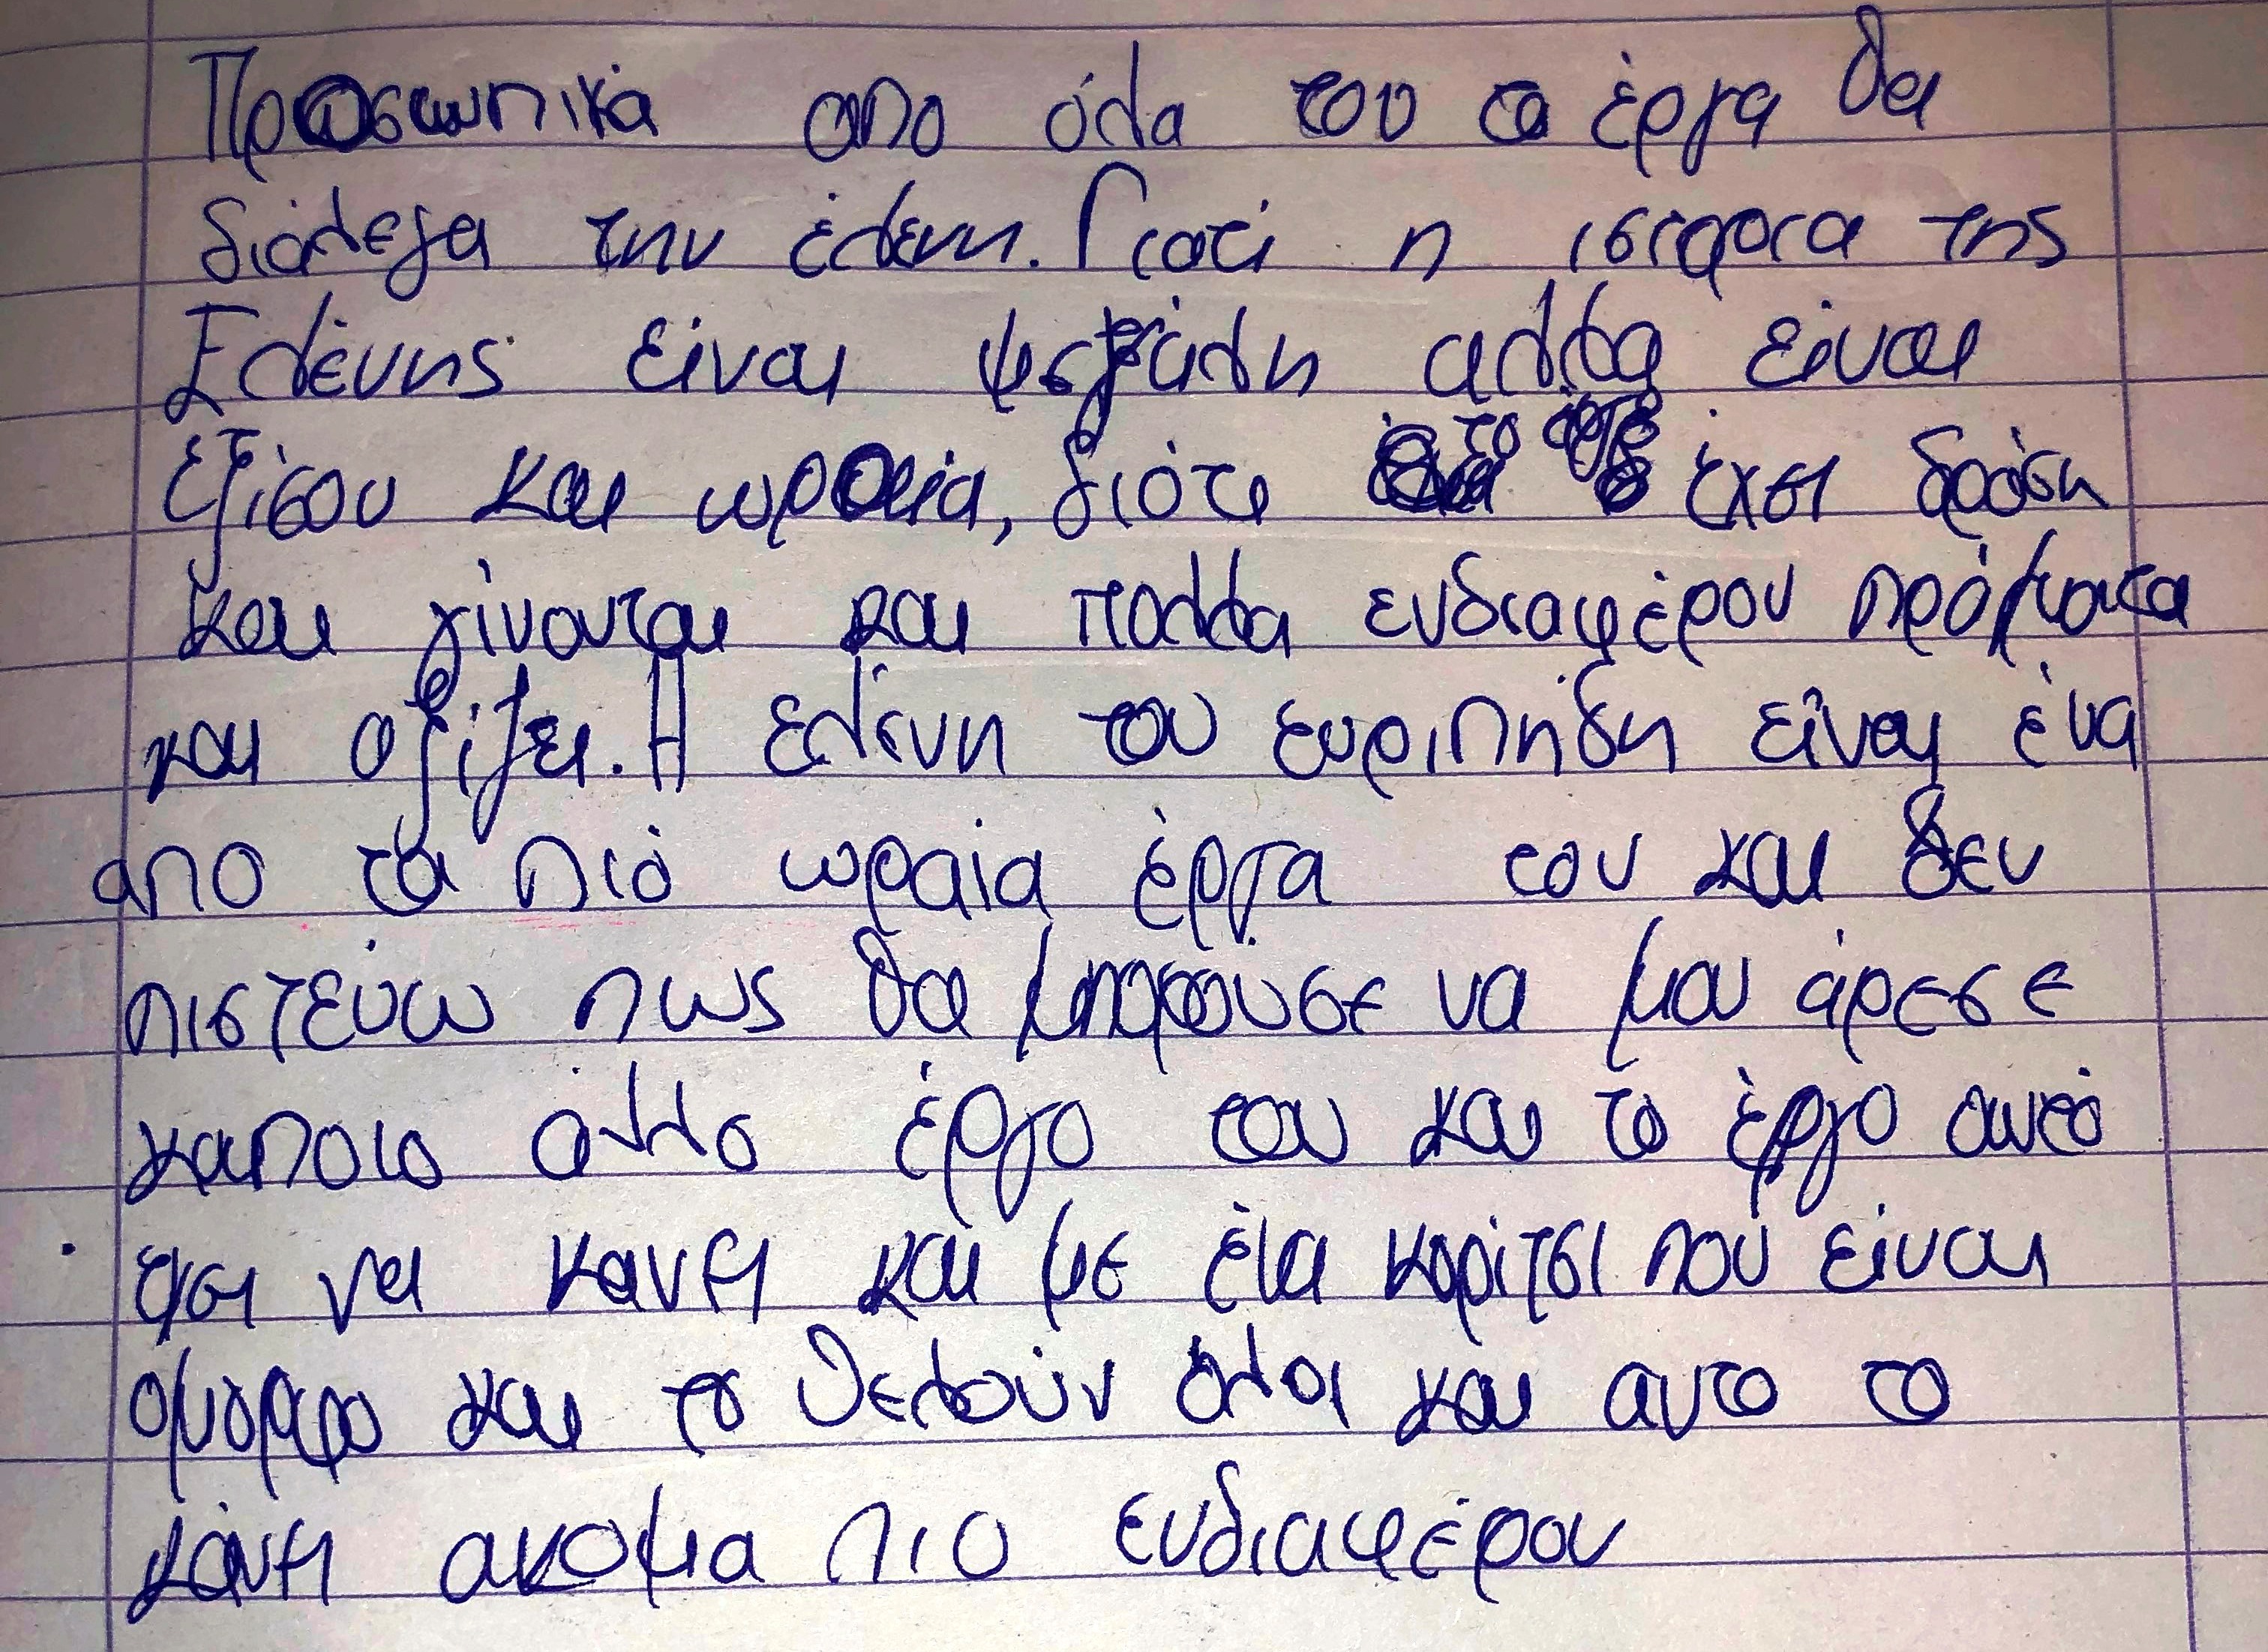 Προσωπικά απο όλα του τα έργα θα
διάλεγα την έλενη. Γιατί η ιστορια της
Ελένης είναι μεγάλη αλλα είναι
εξίσου και ωραία, διότι το έργο έχει δράση
και γίνονται και πολλα ενδιαφέρον πράγματα
και αξίζει. Η ελένη του ευριπηδη είναι ένα
απο τα πιό ωραία έργα του και δεν
πιστεύω πως θα μπορούσε να μου άρεσε
καποιο άλλο έργο του και το έργο αυτό
έχει να κανει και με ένα κορίτσι που είναι
όμορφο και το θελούν όλοι και αυτο το
κάνει ακομα πιο ενδιαφέρον